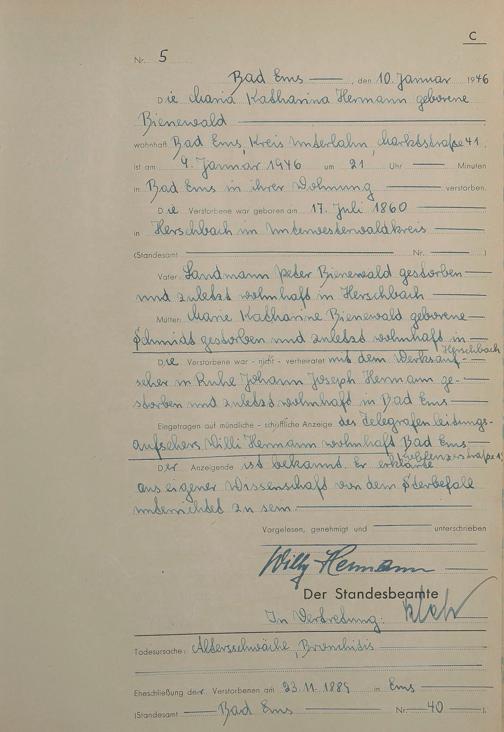 C
Nr. 5
Bad Ems, den 10. Januar 1946
Die Maria Katharina Hermann geborene
Bienewald
wohnhaft Bad Ems, Kreis Unterlahn, Marktstraße 41
ist am 9. Januar 1946 um 21 Uhr Minuten
in Bad Ems in ihrer Wohnung verstorben.
Die Verstorbene war geboren am 17. Juli 1860
in Herschbach im Unterwesterwaldkreis
(Standesamt Nr. )
Vater: Landmann Peter Bienewald gestorben
und zuletzt wohnhaft in Herschbach
Mutter: Marie Katharine Bienewald geborene
Schmidt gestorben und zuletzt wohnhaft in
Herschbach
Die Verstorbene war - nicht - verheiratet mit dem Werksauf-
seher in Ruhe Johann Joseph Hermann ge-
storben und zuletzt wohnhaft in Bad Ems
Eingetragen auf mündliche - schriftliche Anzeige des Telegrafenleitungs-
aufsehers Willi Hermann wohnhaft Bad Ems
Koblenzerstraße
Der Anzeigende ist bekannt. Er erklärte
aus eigener Wissenschaft von dem Sterbefalle
unterrichtet zu sein.
Vorgelesen, genehmigt und unterschrieben
Willy Hermann
Der Standesbeamte
In Vertretung:
Todesursache: Altersschwäche, Bronchitis
Eheschließung der Verstorbenen am 23.11.1889 in Ems
(Standesamt Bad Ems Nr. 40 ).